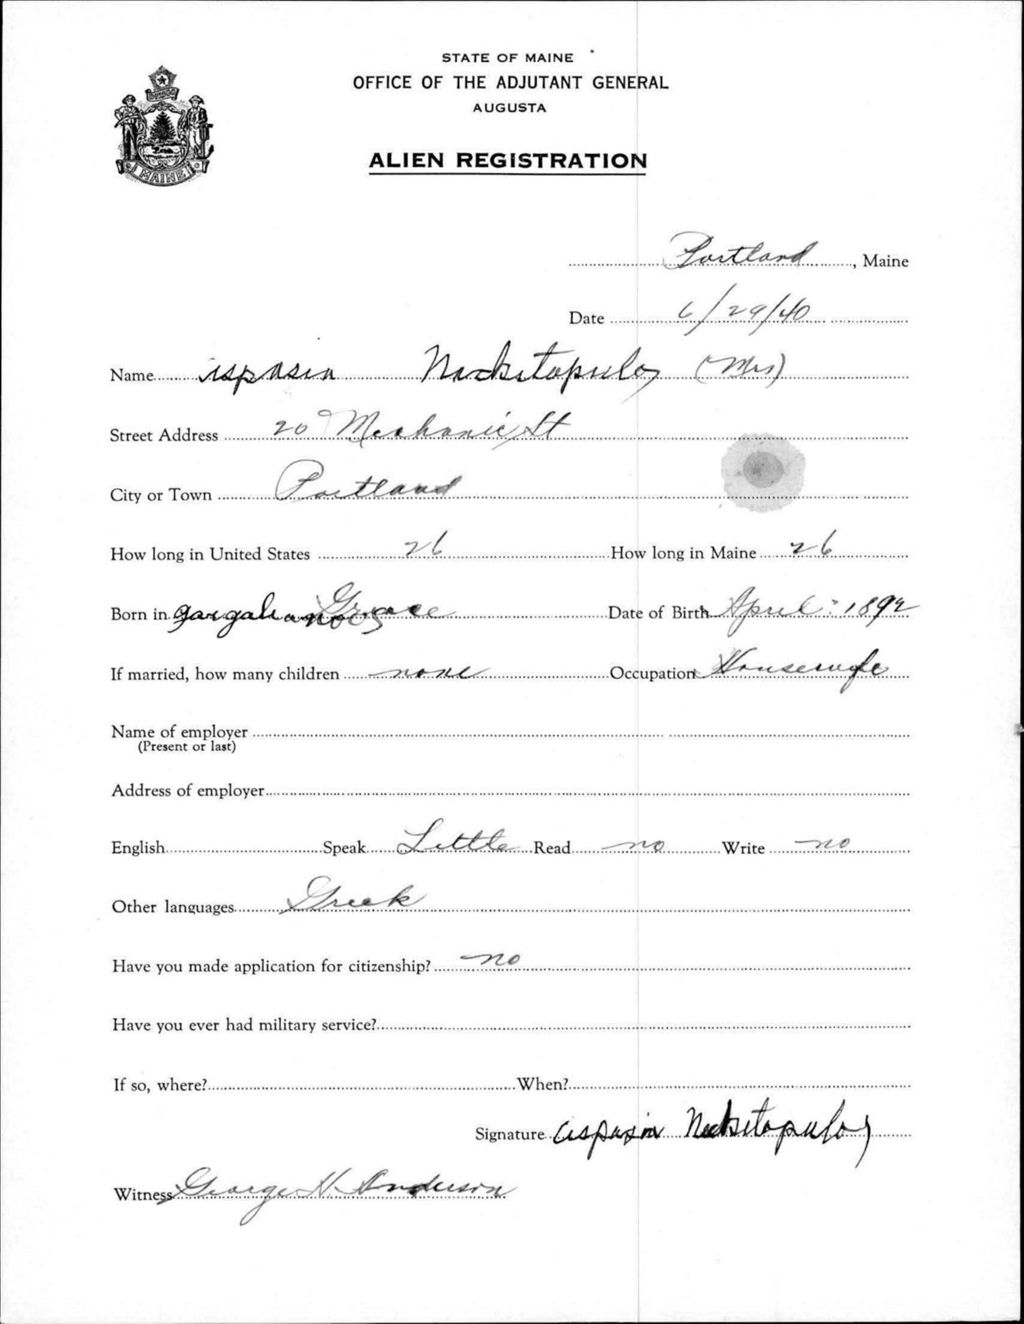 STATE OF MAINE
OFFICE OF THE ADJUTANT GENERAL
AUGUSTA
ALIEN REGISTRATION
MAINE
Portland, Maine
Date 6/29/40
Name aspasia (Mrs)
Street Address 20 Mechanic St
City or Town Portland
How long in United States 26 How long in Maine 26
Born in Greece Date of Birth April 1892
If married, how many children none Occupation Housewife
Name of employer
(Present or last)
Address of employer
English Speak Little Read no Write no
Other languages Greek
Have you made application for citizenship? no
Have you ever had military service?
If so, where? When?
Signature aspasia
Witness George H. Anderson